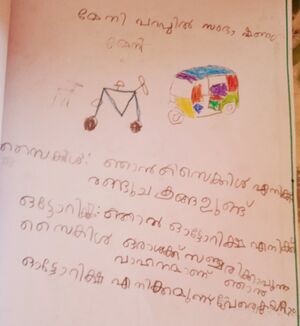 മേനി പറപ്പിൽ സംഭാഷണം
മേനി
സൈക്കിൾ: ഞാൻ സൈക്കിൾ എനിക്ക്
രണ്ടു ചക്രങ്ങളുണ്ട്
ഓട്ടോറിക്ഷ: ഞാൻ ഓട്ടോറിക്ഷ എനിക്ക്
സൈക്കിൾ ഒരാൾക്ക് സഞ്ചരിക്കാവുന്ന
വാഹനമാണ് ഞാൻ
ഓട്ടോറിക്ഷ എനിക്ക് മൂന്ന്